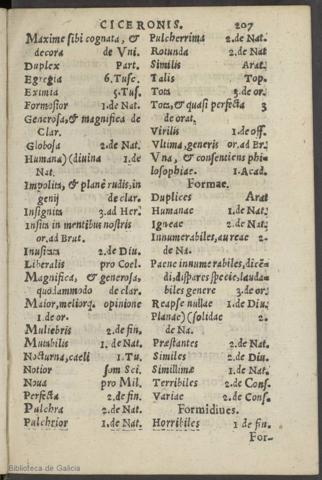 CICERONIS. 207
Maxime sibi cognata, &
decora de Vni.
Duplex Part.
Egregia 6.Tusc.
Eximia 5.Tus.
Formosior 1.de Nat.
Generosa, & magnifica de
Clar.
Globosa 2.de Nat.
Humana) (diuina 1.de
Nat.
Impolita, & planè rudis, in
genij de clar.
Insignita 3.ad Her.
Insita in mentibus nostris
or.ad Brut.
Inusitata 2.de Diu.
Liberalis pro Coel.
Magnifica, & generosa,
quodammodo de clar.
Maior, meliorq. opinione
1.de or.
Muliebris 2.de fin.
Mutabilis 1. de Nat.
Nocturna, caeli 1.Tu.
Notior som Sci.
Noua pro Mil.
Perfecta 2.de fin.
Pulchra 2.de Nat.
Pulchrior 1.de Nat.
Pulcherrima 2.de Nat.
Rotunda 2.de Nat
Similis Arat.
Talis Top.
Tota 3.de or.
Tota, & quasi perfecta 3
de orat.
Virilis 1.de off.
Vltima, generis or.ad Br.
Vna, & consentiens phi-
losophiae. 1.Acad.
Formae.
Duplices Arat
Humanae 1.de Nat.
Igneae 2.de Nat.
Innumerabiles, aureae 2.
de Na.
Paene innumerabiles, dicẽ-
di, dispares specie, lauda-
biles genere 3.de or.
Reapse nullae 1.de Diu.
Planae) (solidae 2.
de Na.
Praestantes 2.de Nat.
Similes 2.de Diu.
Simillimae 1.de Nat.
Terribiles 2.de Cons.
Variae 2.de Cons.
Formidines.
Horribiles 1 de fin.
For-
Biblioteca de Galicia